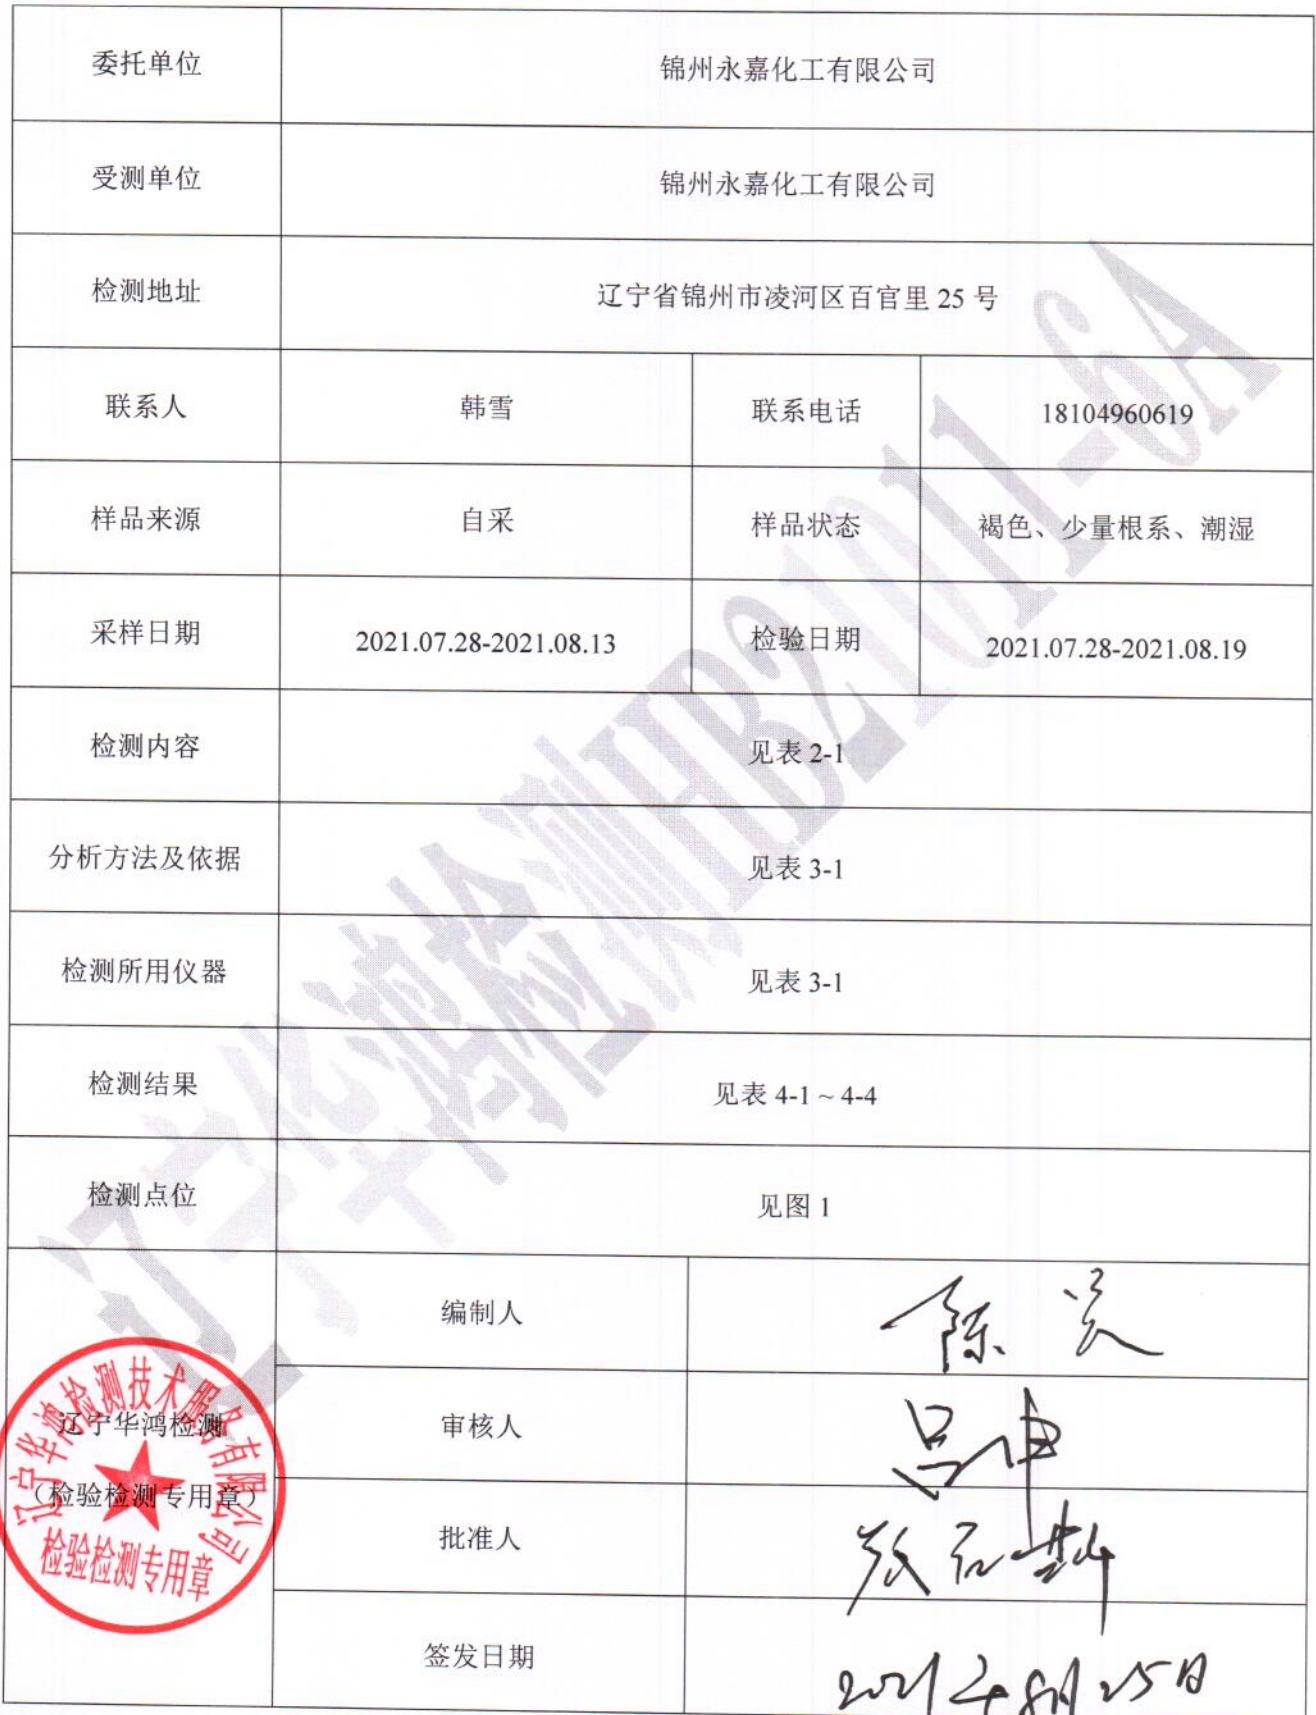 委托单位 锦州永嘉化工有限公司
受测单位 锦州永嘉化工有限公司
检测地址 辽宁省锦州市凌河区百官里 25 号
联系人 韩雪 联系电话 18104960619
样品来源 自采 样品状态 褐色、少量根系、潮湿
采样日期 2021.07.28-2021.08.13 检验日期 2021.07.28-2021.08.19
检测内容 见表 2-1
分析方法及依据 见表 3-1
检测所用仪器 见表 3-1
检测结果 见表 4-1 ~ 4-4
检测点位 见图 1
编制人
审核人 吕申
批准人
签发日期 2021年8月25日
辽宁华鸿检测
（检验检测专用章）
辽宁华鸿检测技术服务有限公司
检验检测专用章
辽宁华鸿检测HB21011-6A